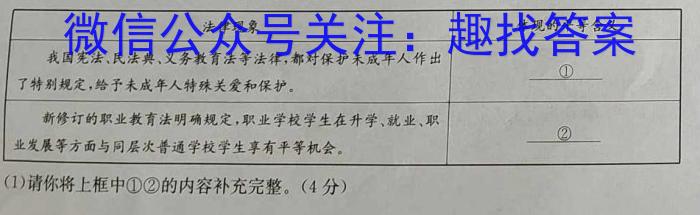 法律现象
微信公众号关注：趣找答案
我国宪法、民法典、义务教育法等法律,都对保护未成年人作出
了特别规定,给予未成年人特殊关爱和保护。
①
新修订的职业教育法明确规定,职业学校学生在升学、就业、职
业发展等方面与同层次普通学校学生享有平等机会。
②
(1)请你将上框中①②的内容补充完整。(4分)